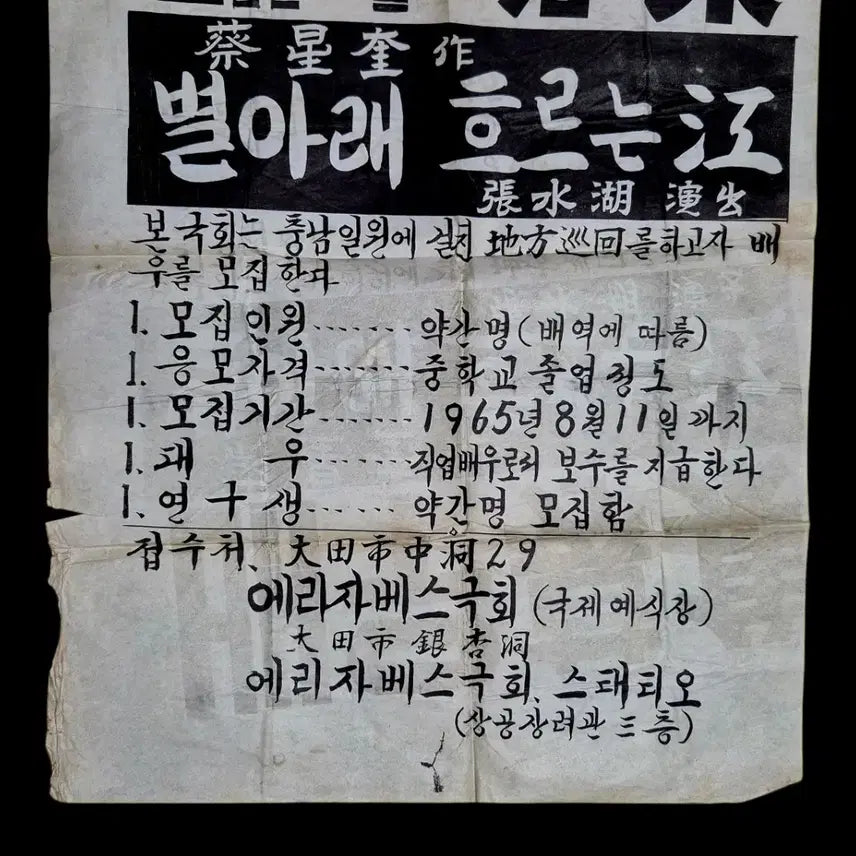 蔡星奎 作
별아래 흐르는 江
張水湖 演出
본 국회는 충남일원에 실친 地方巡回를하고자 배
우를 모집한다
1. 모집인원....... 약간명(배역에 따름)
1. 응모자격....... 중학교 졸업정도
1. 모집기간....... 1965년 8월 11일 까지
1. 대 우....... 직업배우로서 보수를 지급한다
1. 연구생...... 약간명 모집함
접수처、大田市中洞29
에리자베스극회 (국제예식장)
大田市銀杏洞
에리자베스극회、스태디오
(상공장려관 三層)